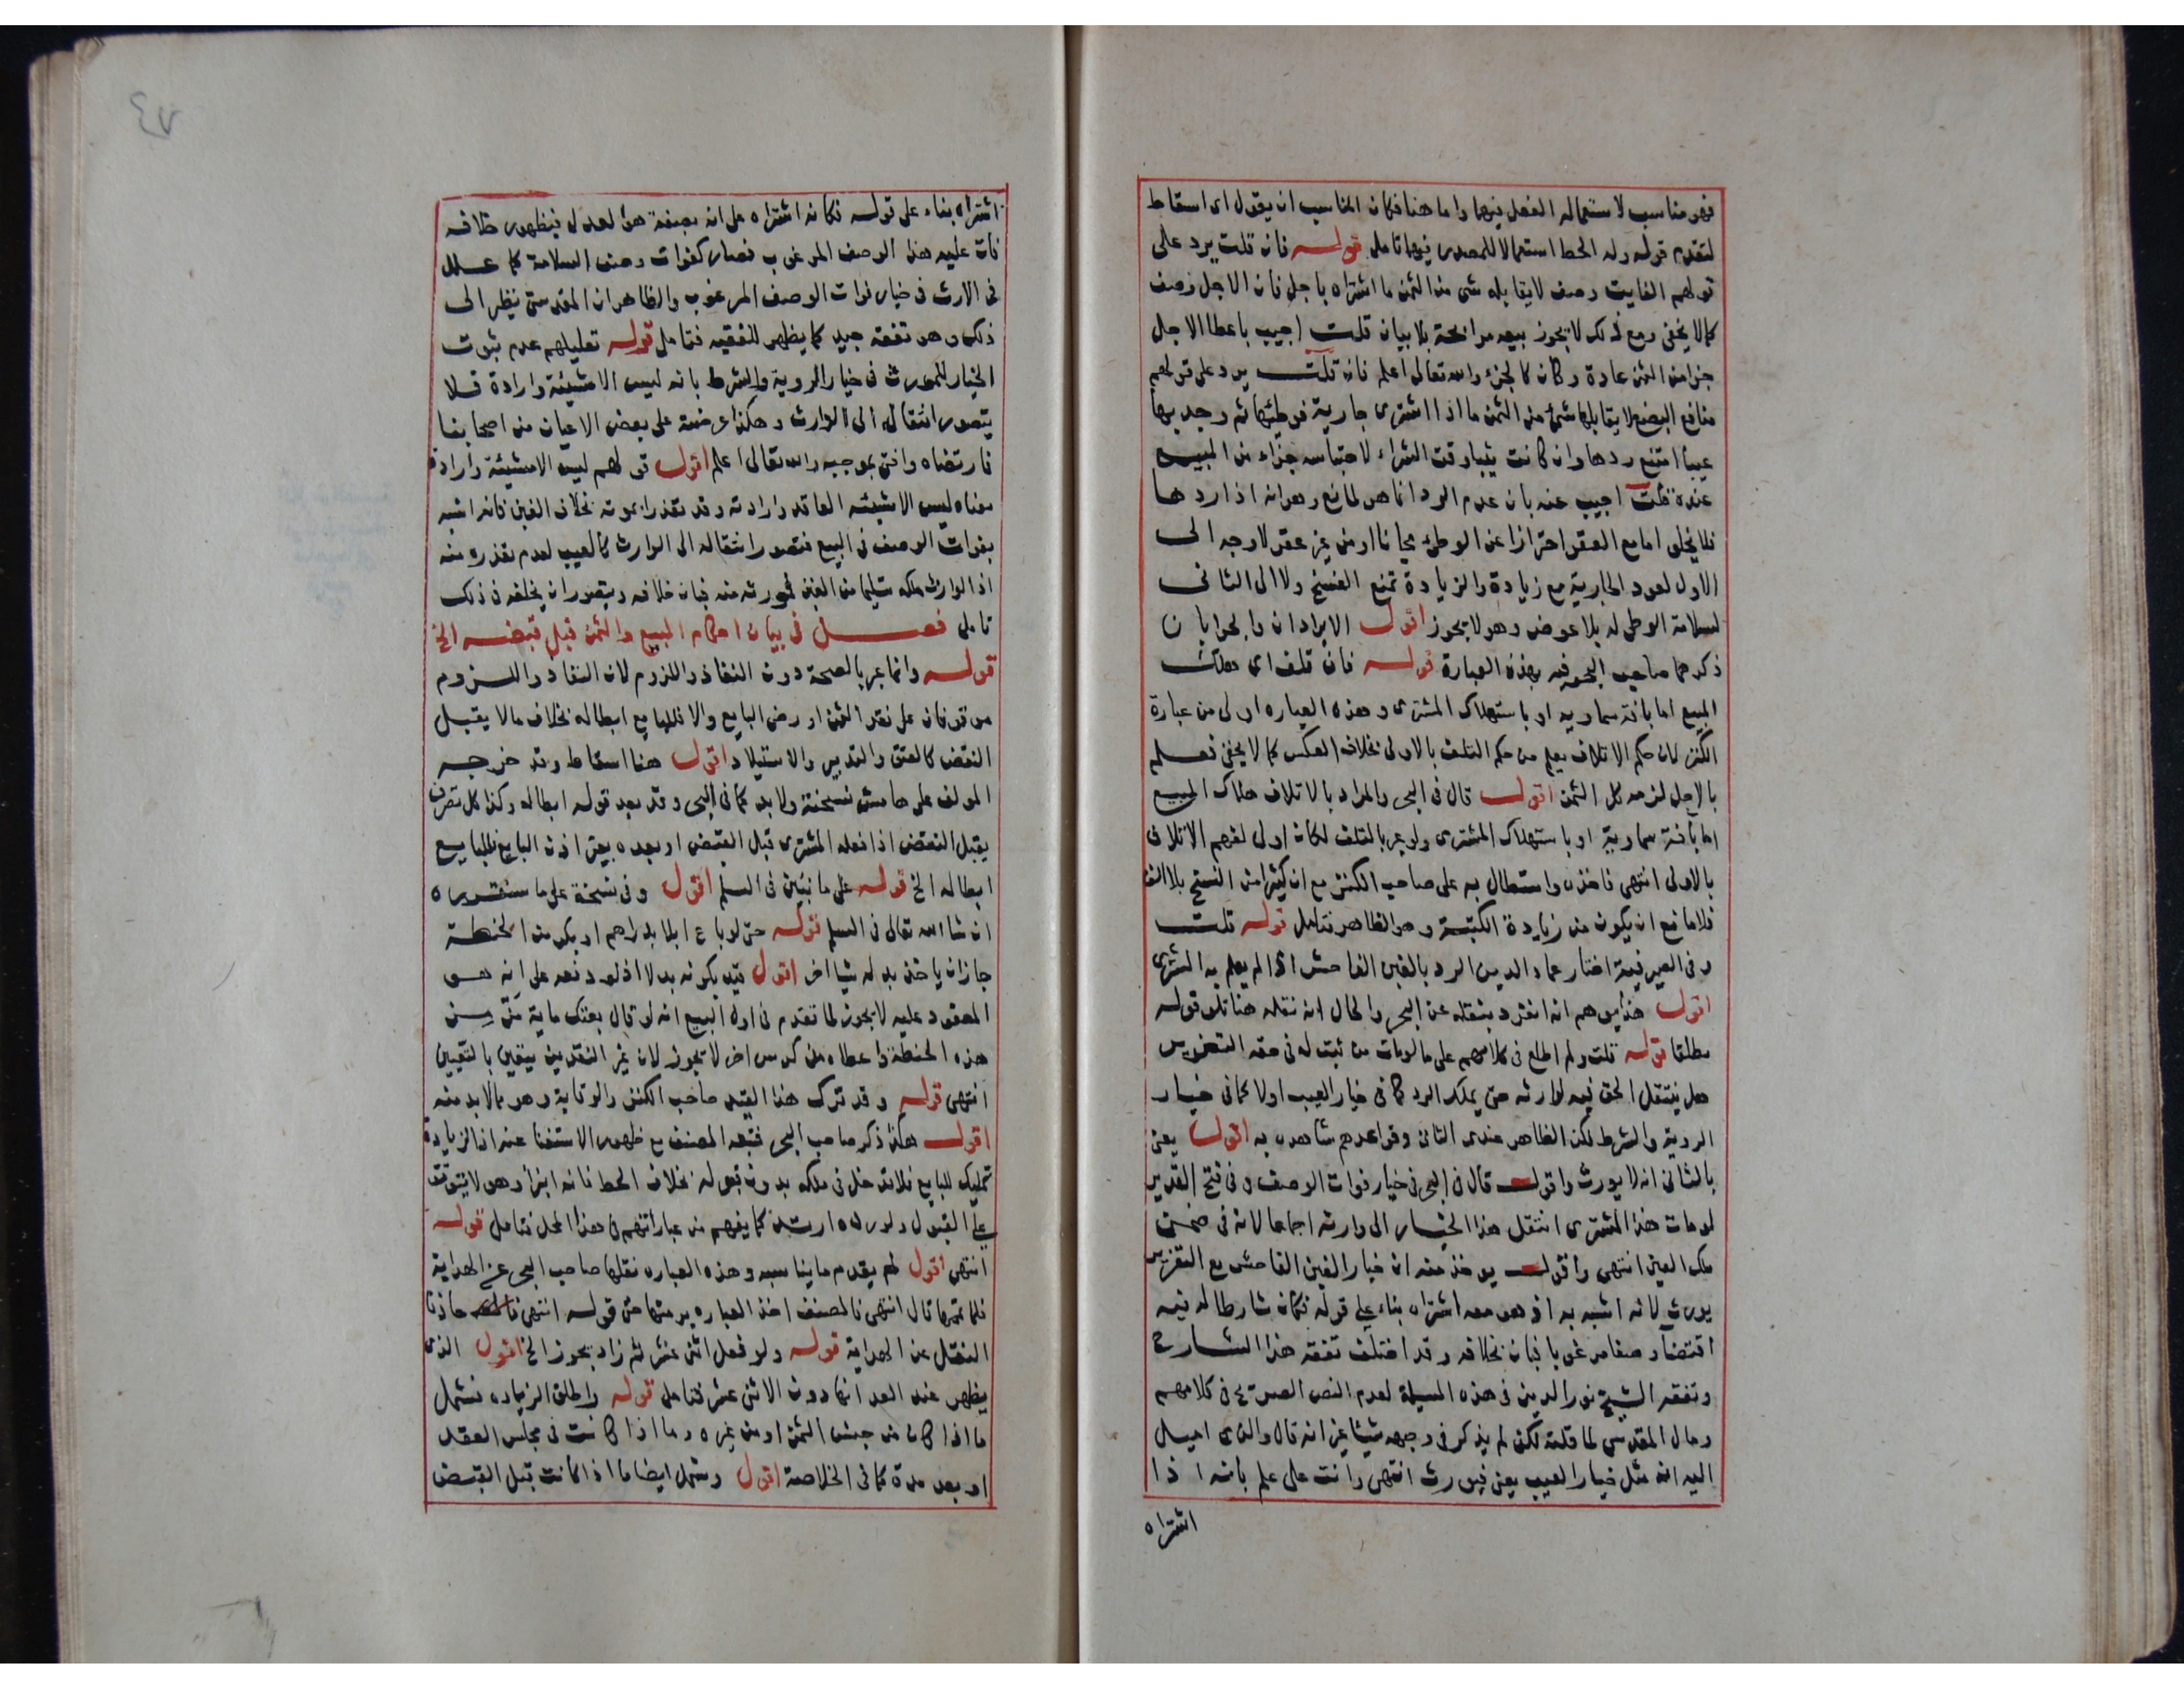 فهو مناسب لاستعماله الفعل فيها واما هنا فكان المناسب ان يقول اى اسقاط
لتقدم قوله وله الحط استعمالا للمصدر فيها تامل قوله فان قلت يرد على
قولهم الفايت وصف لا يقابله شى من الثمن ما اشتراه باجل فان الاجل وصف
كما لا يخفى ومع ذلك لا يجوز بيعه مرابحة بلا بيان قلت اجيب باعطا الاجل
جزا من الثمن عادة وكان كالجزء والله تعالى اعلم فان قلت يرد على قولهم
منافع البضع لا يقابلها شئ من الثمن ما اذا اشترى جارية فوطئها ثم وجد بها
عيبا امتنع ردها وان كانت ثيبا وقت الشراء لاحتباسه جزاء من المبيع
عنده قلت اجيب عنه بان عدم الرد انما هو لمانع وهو انه اذا ردها
فلا يخلو اما مع العقر احترازا عن الوطئ مجانا او من غير عقر لا وجه الى
الاول لعود الجارية مع زيادة والزيادة تمنع الفسخ ولا الى الثانى
لسلامة الوطى له بلا عوض وهو لا يجوز اقول الايرادان والجوابان
ذكرهما صاحب البحر فيه بهذه العبارة قوله فان تلف اى هلك
المبيع اما بافة سماوية او باستهلاك المشترى وهذه العباره اولى من عبارة
الكنز لان حكم الاتلاف يعلم من حكم التلف بالاولى بخلاف العكس كما لا يخفى فعلم
بالاجل لزمه كل الثمن اقول قال فى البحر والمراد بالاتلاف هلاك المبيع
اما بأفة سماوية او باستهلاك المشترى ولو عبر بالتلف لكان اولى لفهم الاتلاف
بالاولى انتهى فاخذه واستطال به على صاحب الكنز مع ان كثيرا من النسخ بلا الف
فلا مانع ان يكون من زيادة الكتبة وهو الظاهر فتامل قوله قلت
وفى الصيرفية اختار عماد الدين الرد بالغبن الفاحش اذا لم يعلم به المشترى
اقول هذا يوهم انه انفرد بنقله عن البحر والحال انه نقله هنا تلو قوله
مطلقا قوله قلت ولم اطلع فى كلامهم على ما لو مات من ثبت له فى حقه التغرير
هل ينتقل الحق فيه لوارثه حتى يملك الرد كما فى خيار العيب او لا كما فى خيار
الروية والشرط لكن الظاهر عندى الثانى وقواعدهم شاهده به اقول يعنى
بالثانى انه لا يورث واقول قال فى البحر فى خيار فوات الوصف وفى فتح القدير
لو مات هذا المشترى انتقل هذا الخيار الى وارثه اجماعا لانه فى ضمن
ملك العين انتهى واقول يوخذ منه ان خيار الغبن الفاحش مع التغرير
يورث لانه اشبه به اذ هو معه اشتراه بناء على قوله فكان شارطا له فيه
اقتضآ وصفا مرغوبا فبان بخلافه وقد اختلف تفقه هذا الشارح
وتفقه الشيخ نور الدين فى هذه المسيلة لعدم النص الصريح فى كلامهم
ومال المقدسي لما قلته لكن لم يذكر فى وجهه شيئا غير انه قال والذى اميل
اليه انه مثل خيار العيب يعنى فيورث انتهى وانت على علم بانه اذا
اشتراه
اشتراه بناء على قوله فكانه اشتراه على انه بصفة هو لعدل فبظهور خلافه
فات عليه هذا الوصف المرغوب فصار كفوات وصف السلامة كما علل
فى الارث فى خيار فوات الوصف المرغوب والظاهر ان المقدسى ينظر الى
ذلك وهو تفقه جيد كما يظهر للفقيه فتامل قوله تعليلهم عدم ثبوت
الخيار للمورث فى خيار الروية والشرط بانه ليس الا مشيئة وارادة فلا
يتصور انتقاله الى الوارث وهكذا عرضته على بعض الاعيان من اصحابنا
فارتضاه وافتى بموجبه والله تعالى اعلم اقول قولهم ليس الا مشيئة وارادة
معناه ليس الا مشيئه العاقد وارادته وقد تعذرا بموته بخلاف الغبن فانه اشبه
بفوات الوصف فى البيع فتصور انتقاله الى الوارث كالعيب لعدم تعذره منه
اذ الوارث ملكه سليما من الغبن فبان خلافه ويتصور ان يخلفه فى ذلك
تامل فصل فى بيان احكام المبيع والثمن قبل قبضه الخ
قوله وانما عبر بالصحة دون النفاذ واللزوم لان النفاذ واللزوم
موقوفان على نقد الثمن او رضى البايع والا فللبايع ابطاله بخلاف ما لا يقبل
النقض كالعتق والتدبير والاستيلاد اقول هنا اسقاط وقد خرجه
المولف على هامش نسخته ولا بد كما فى البحر وقد بعد قوله ابطاله وكذا كل تصرف
يقبل النقض اذا فعله المشترى قبل القبض او بعده بغير اذن البايع فللبايع
ابطاله الخ قوله على ما نبين فى السلم اقول وفى نسخة على ما سنقرره
ان شا الله تعالى فى السلم قوله حتى لو باع ابلا بدراهم او بكر من الحنطة
جاز ان ياخذ بدله شيا اخر اقول قيد بكونه بدلا اذ لو دفعه على انه هو
المعقود عليه لا يجوز لما تقدم فى اول البيع انه لو قال بعتك ماية من من
هذه الحنطة واعطاه من كدس اخر لا يجوز لان غير النقدين يتعين بالتعيين
انتهى قوله وقد ترك هذا القيد صاحب الكنز والوقاية وهو مما لا بد منه
اقول هكذا ذكر صاحب البحر فتبعه المصنف مع ظهور الاستغنا عنه اذ الزيادة
تمليك للبايع فلا تدخل فى ملكه بدون قبوله بخلاف الحط فانه ابرأ وهو لا يتوقف
على القبول كما يفهم من عباراتهم فى هذا المحل فتامل قوله
انتهى اقول لم يقدم ما يناسبه وهذه العباره نقلها صاحب البحر عن الهداية
فلما تمها قال انتهى فالمصنف اخذ العباره برمتها حتى قوله انتهى حاذفا
النقل عن الهداية قوله ولو فعل اثنى عشر ثم زاد يجوز الخ اقول الذى
يظهر عند العد انها دون الاثنى عشر فتامل قوله واطلق الزياده فشمل
ما اذا كان من جنس الثمن او من غيره وما اذا كانت فى مجلس العقد
او بعد مدة كما فى الخلاصة اقول وشمل ايضا ما اذا كانت قبل القبض